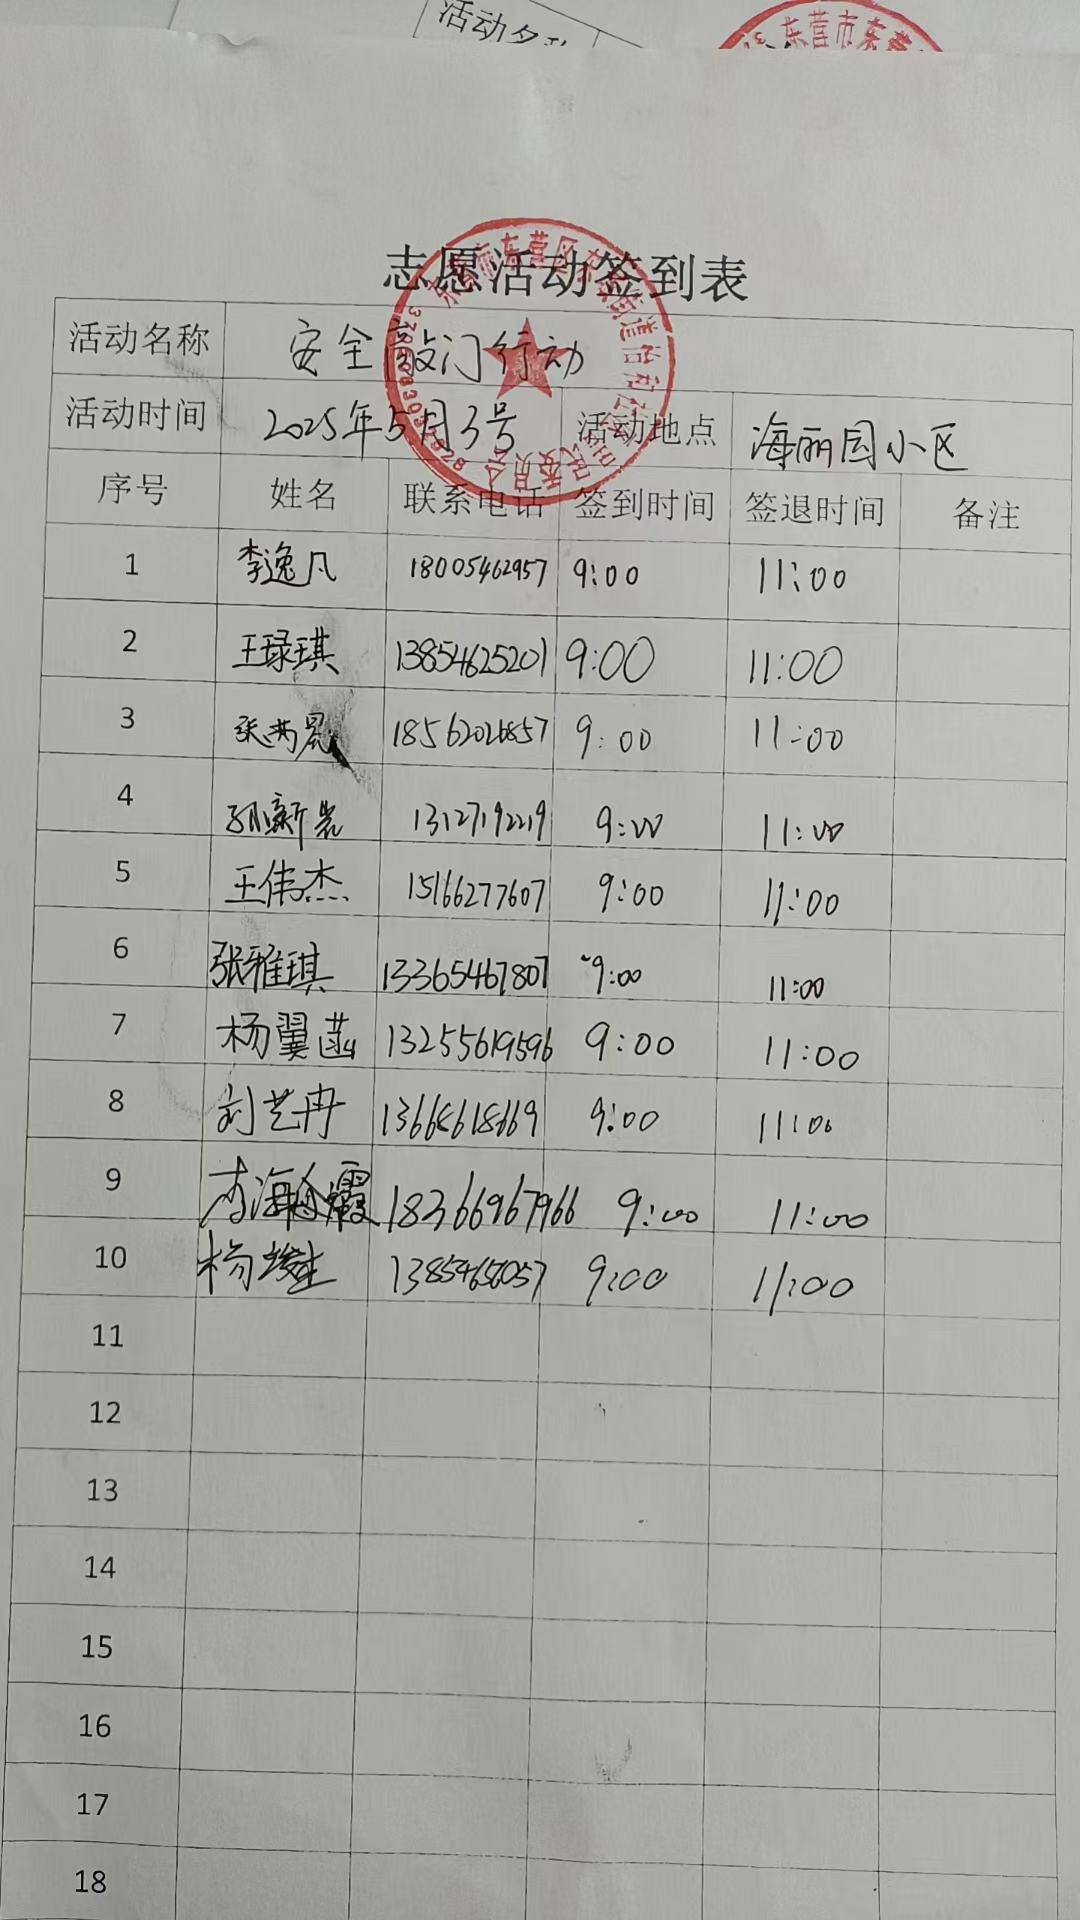 活动名称
东营市东营
志愿活动签到表
活动名称 安全敲门行动
活动时间 2025年5月3号 活动地点 海丽园小区
序号 姓名 联系电话 签到时间 签退时间 备注
1 李逸凡 18005462957 9:00 11:00
2 王琭琪 13854625201 9:00 11:00
3 9:00 11:00
4 13127192219 9:00 11:00
5 王伟杰 15166277607 9:00 11:00
6 张雅琪 13365467807 9:00 11:00
7 杨翼菡 13255619596 9:00 11:00
8 刘艺冉 9:00 11:00
9 18366967966 9:00 11:00
10 9:00 11:00
11
12
13
14
15
16
17
18